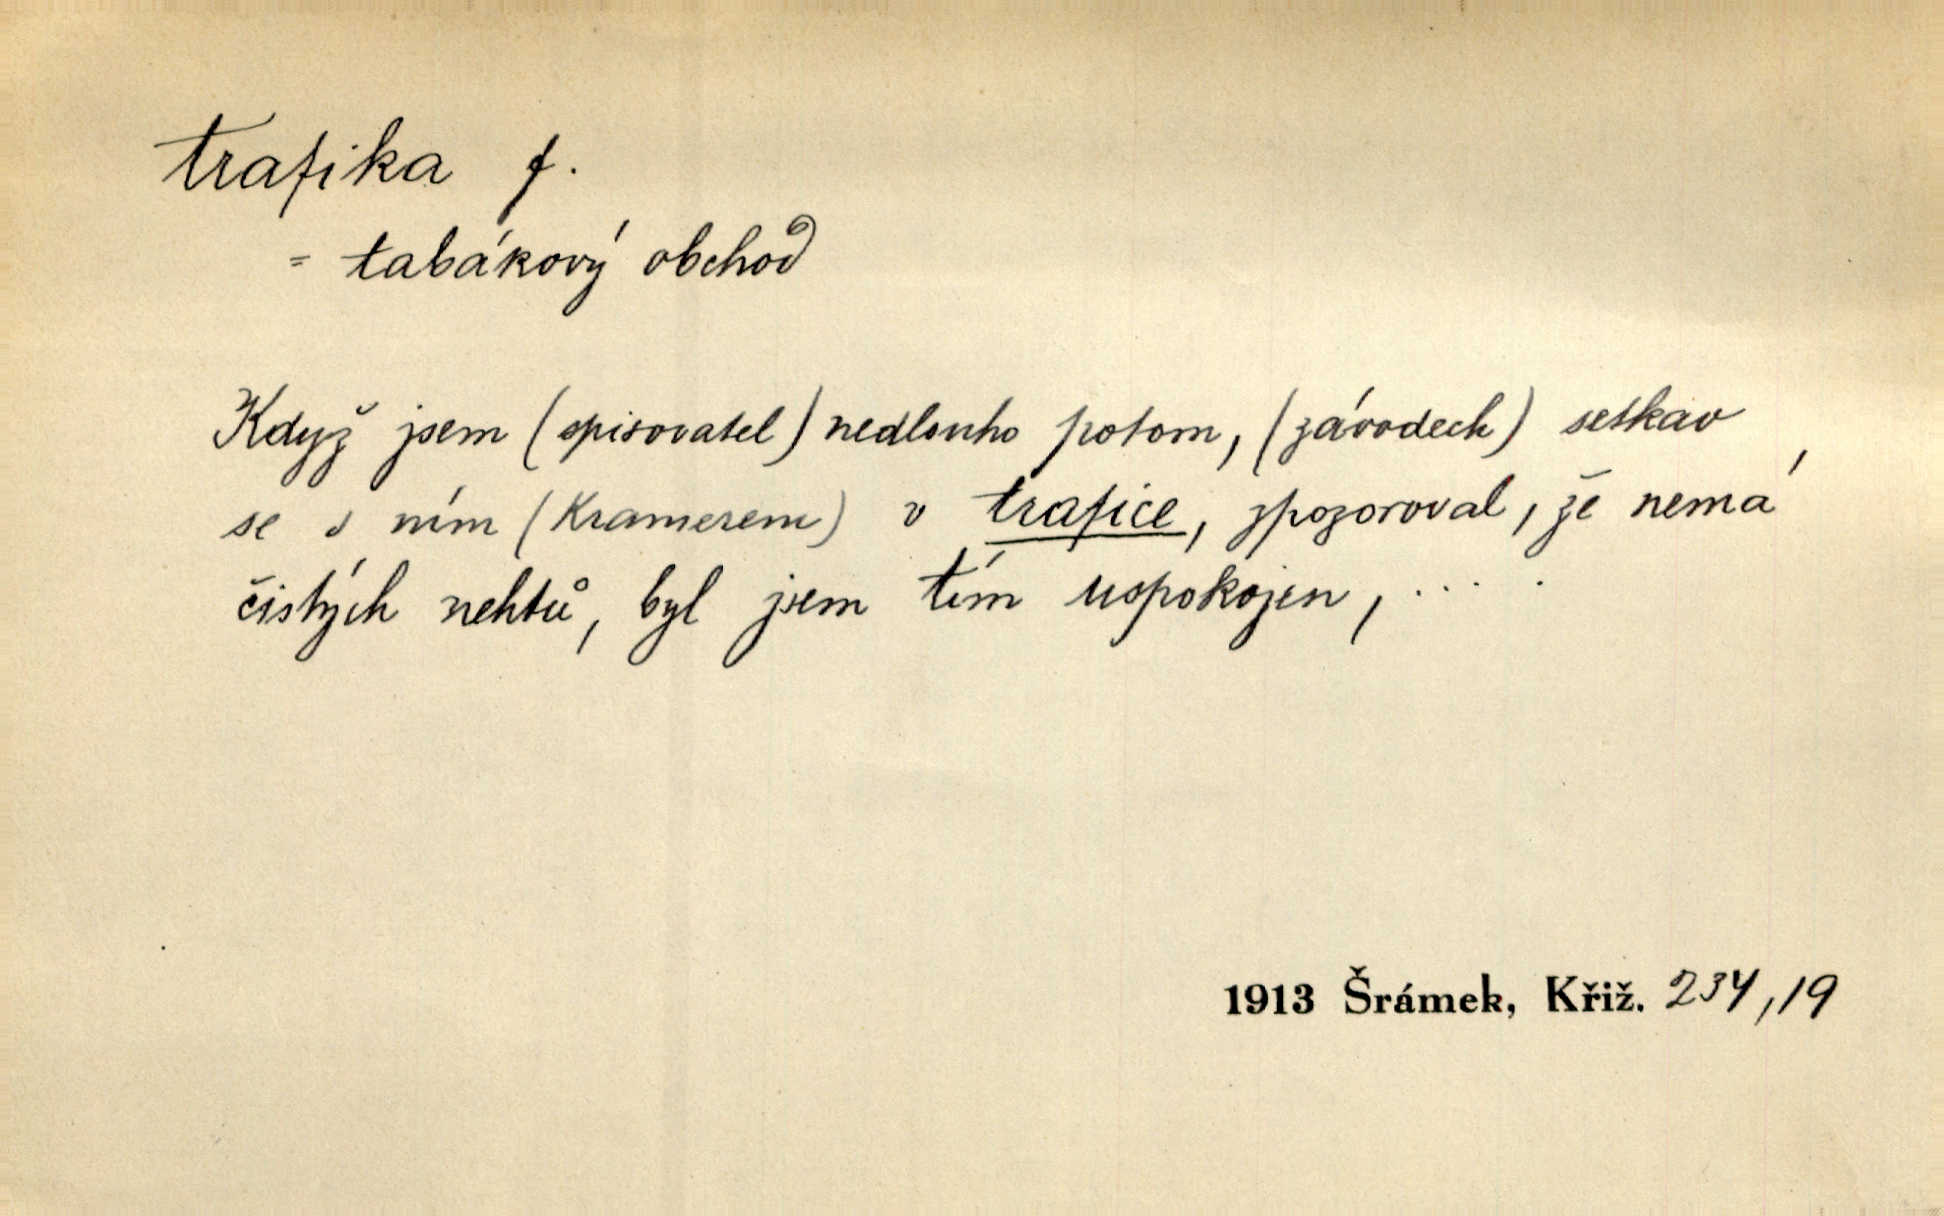 trafika f.
= tabákový obchod
Když jsem (spisovatel) nedlouho potom, (závodech) setkav
se s ním (Kramerem) v trafice, zpozoroval, že nemá
čistých nehtů, byl jsem tím uspokojen, ....
1913 Šrámek, Křiž. 234,19